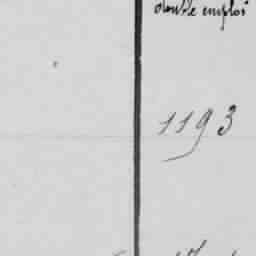 double emploi
1193